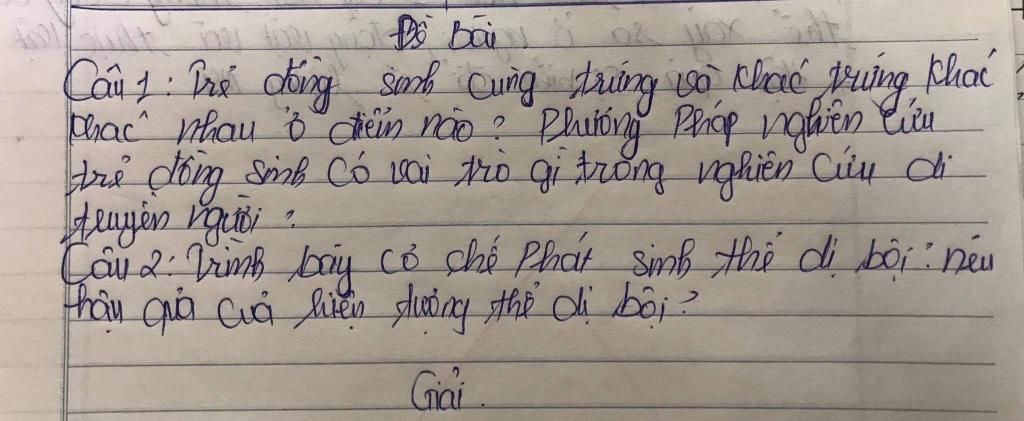 Đề bài
Câu 1: Trẻ đồng sinh cùng trứng và khác trứng khác
khác nhau ở điểm nào? Phương Pháp nghiên cứu
trẻ đồng sinh có vai trò gì trong nghiên cứu di
truyền người?
Câu 2: Trình bày cơ chế Phát sinh thể dị bội? nêu
hậu quả của hiện tượng thể dị bội?
Giải.